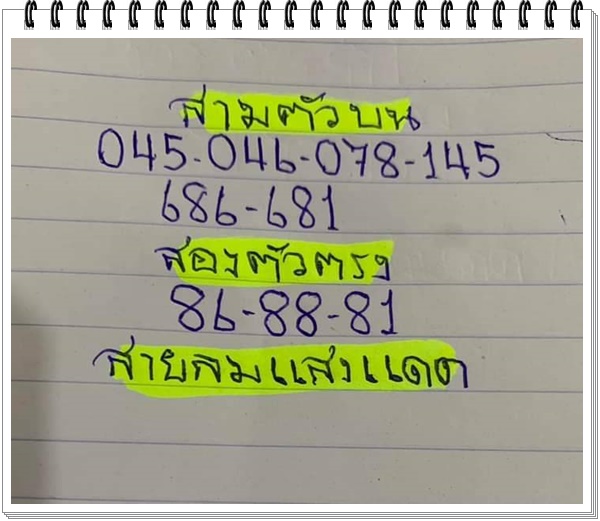 สามตัวบน
045-046-078-145
686-681
สองตัวตรง
86-88-81
สายลมแสงแดด